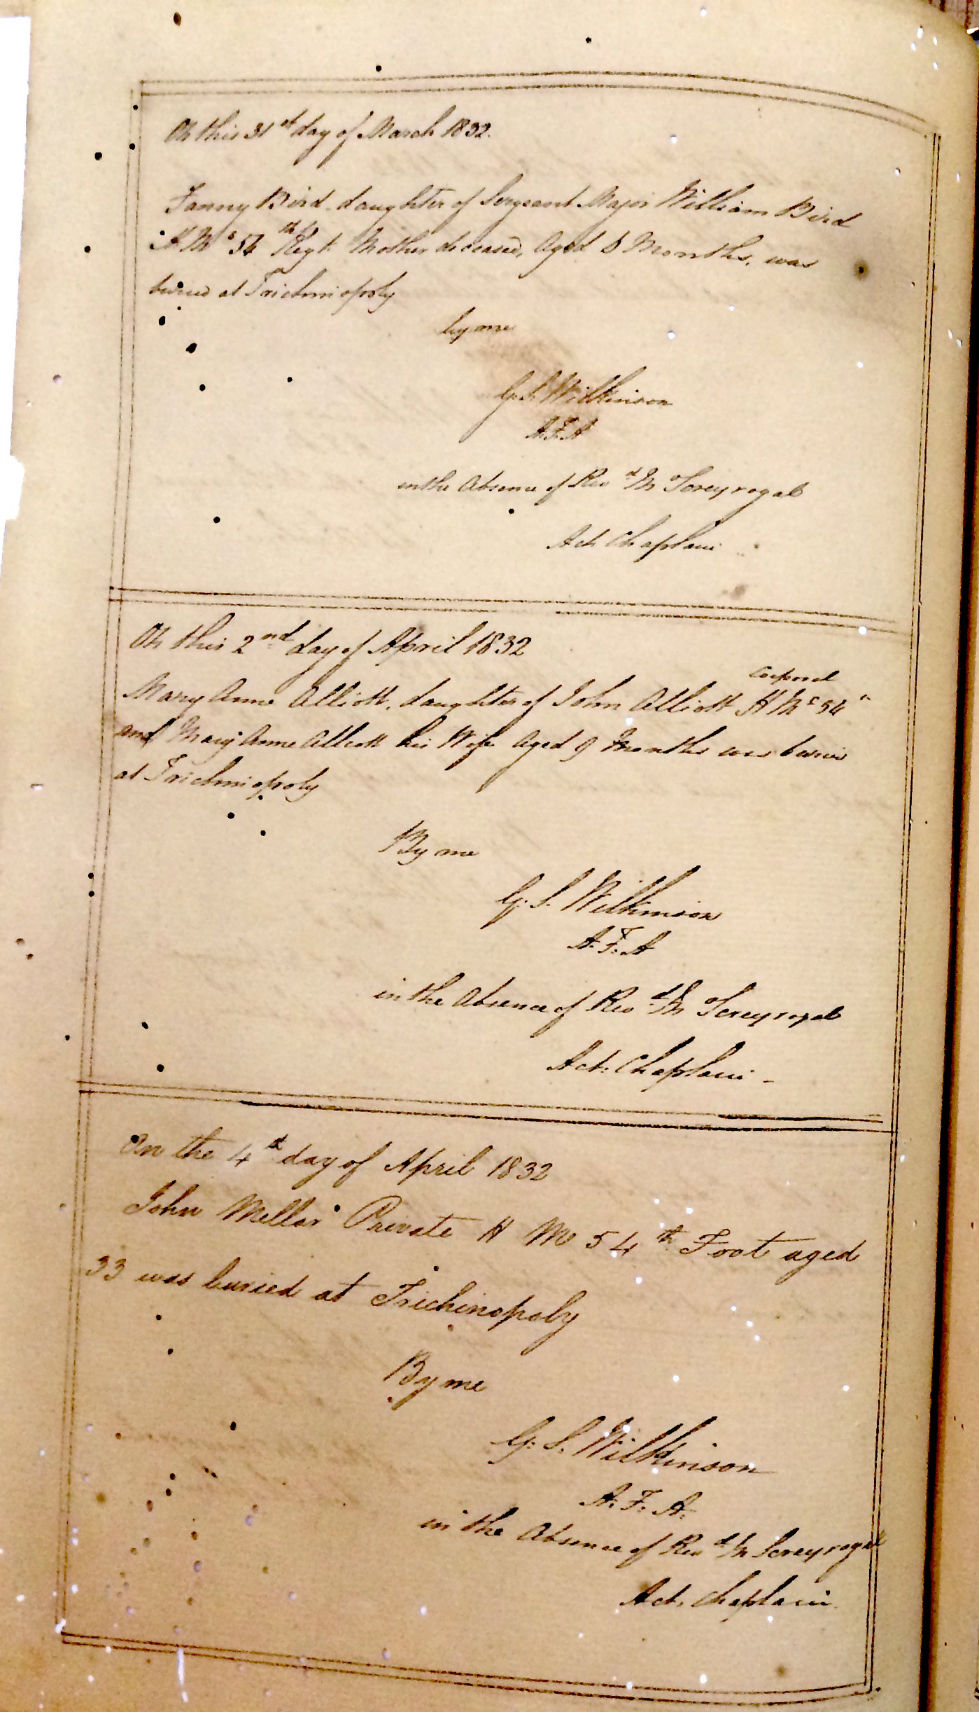 On this 31st day of March 1832.
Fanny Bird daughter of Sergeant Major William Bird
H. Ms 54th Regt. Mother deceased, Aged 6 Months, was
buried at Trichinopoly
by me
G. S. Wilkinson
A. F. A
in the Absence of Revd Mr
Act. Chaplain
On this 2nd day of April 1832
Corporal
Mary Anne Alliott, daughter of John Alliott H Ms 54"
and Mary Anne Alliott his Wife Aged 9 Months was buried
at Trichinopoly
By me
G. S. Wilkinson
A. F. A
in the Absence of Revd Mr
Act. Chaplain -
On the 4th day of April 1832
John Mellor Private H M 54th Foot aged
33 was buried at Trichinopoly
By me
G. S. Wilkinson
A. F. A.
in the Absence of Revd Mr
Act. Chaplain